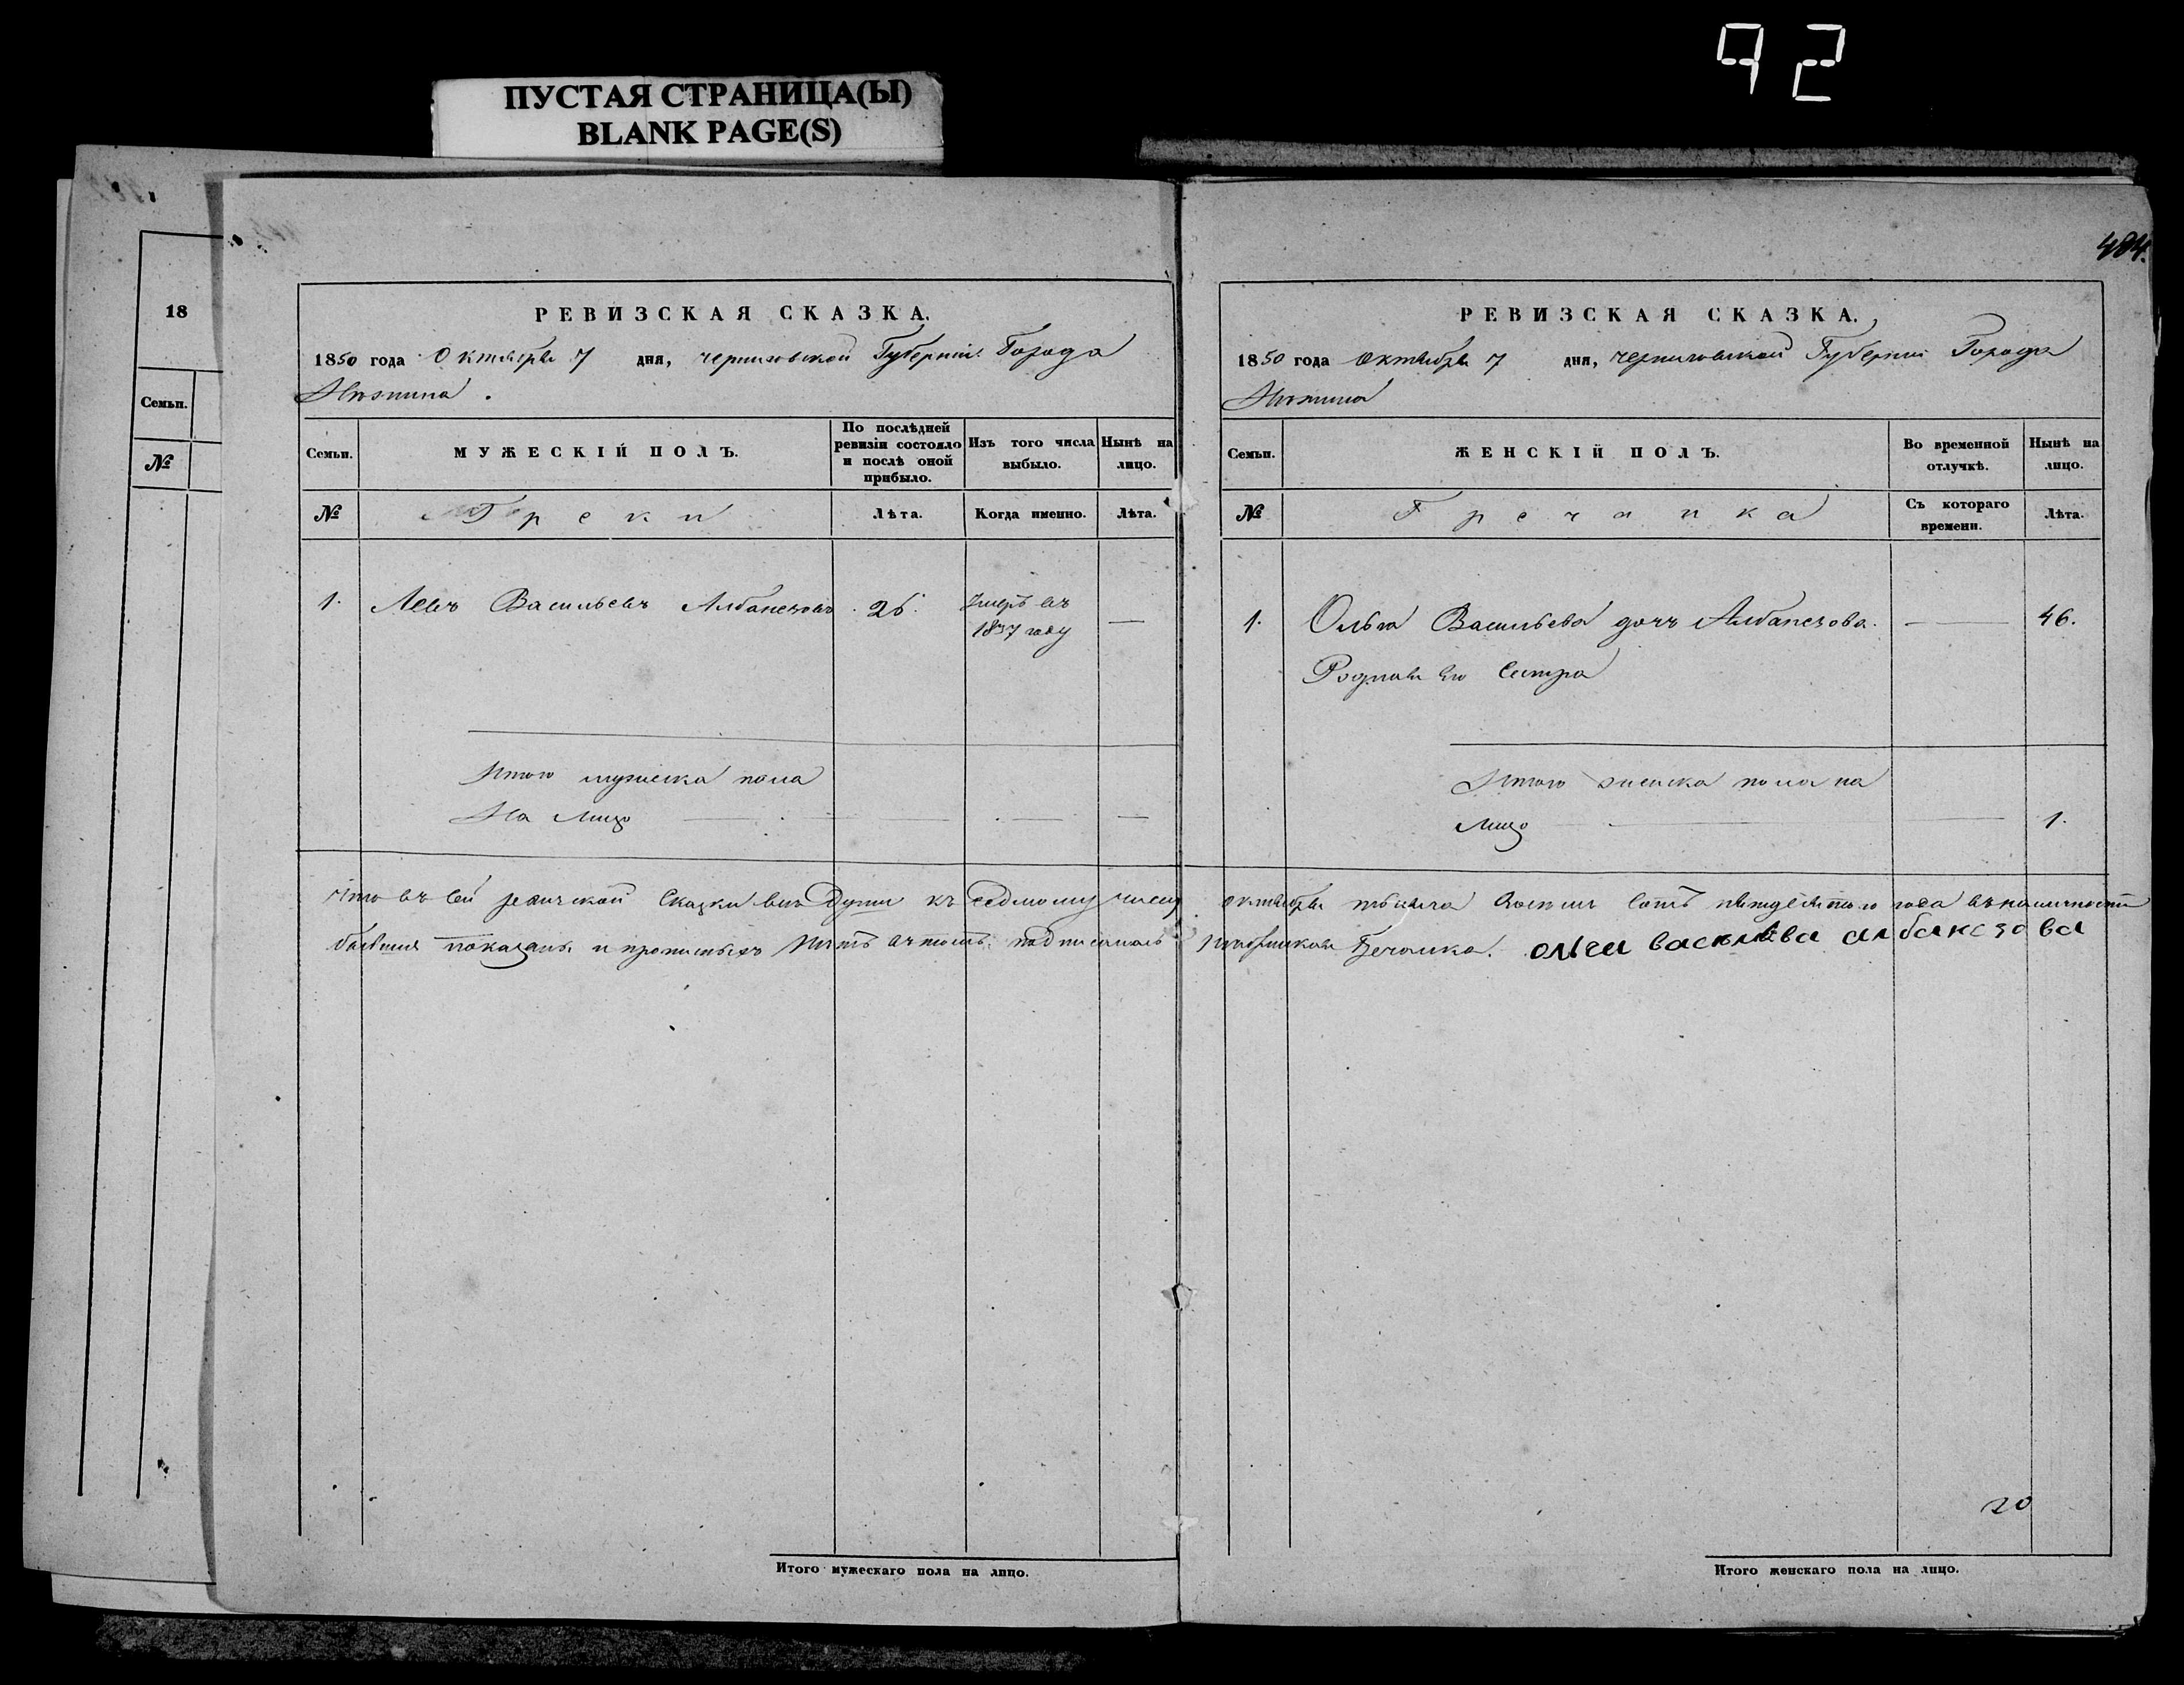 92
ПУСТАЯ СТРАНИЦА(Ы)
BLANK PAGE(S)
18
Семьи.
№
РЕВИЗСКАЯ СКАЗКА.
1850 года Октября 7 дня, Черниговской Губерніи Города
Нѣжина.
Семьи. МУЖЕСКІЙ ПОЛЪ. По послѣдней ревизіи состояло и послѣ оной прибыло. Изъ того числа выбыло. Нынѣ на лицо.
№ Греки Лѣта. Когда именно. Лѣта.
1. Левъ Васильевъ Албанезовъ 26. Умеръ въ
1837 году —
Итого мужеска пола
На Лицо — — —
484.
РЕВИЗСКАЯ СКАЗКА.
1850 года Октября 7 дня, Черниговской Губерніи Города
Нѣжина
Семьи. ЖЕНСКІЙ ПОЛЪ. Во временной отлучкѣ. Нынѣ на лицо.
№ Гречанка Съ котораго времени. Лѣта.
1. Ольга Васильева дочь Албанезова. — 46.
Родная его Сестра
Итого женска пола на
Лицо — — 1.
Что въ сей ревизской Сказки всѣ Души къ Седмому числу октября мѣсяца восемь сотъ пятидесятого года въ наличности
бывшія показаны и въ томъ подписалась Ольга Васильева Албанезова
20
Итого мужескаго пола на лицо.
Итого женскаго пола на лицо.